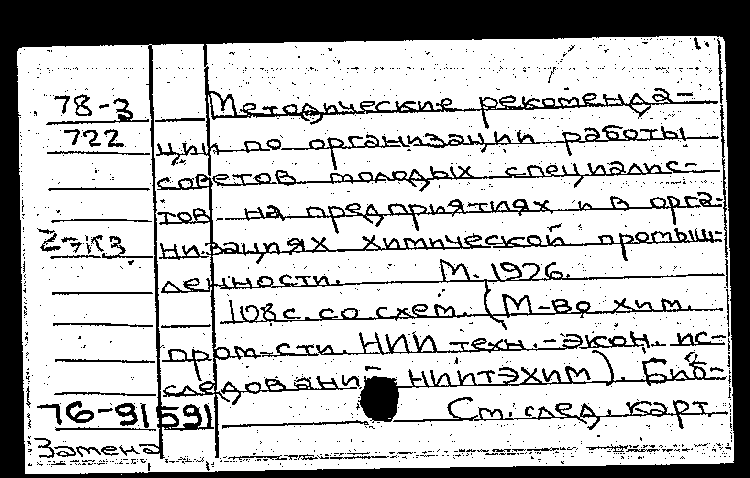 1.
78-3 Методические рекоменда-
722 ции по организации работы
советов молодых специалис-
тов на предприятиях и в орга-
2-7КЗ низациях химической промыш-
ленности. М. 1976.
108 с. со схем. (М-во хим.
пром-сти. НИИ техн.-экон. ис-
следований НИИТЭХИМ). Биб-
76-91591 См. след. карт.
Замена